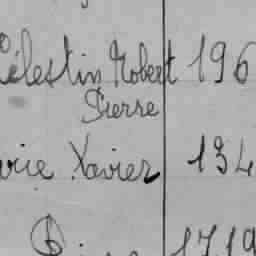 Célestin Robert 196
Pierre
Xavier 134
1719